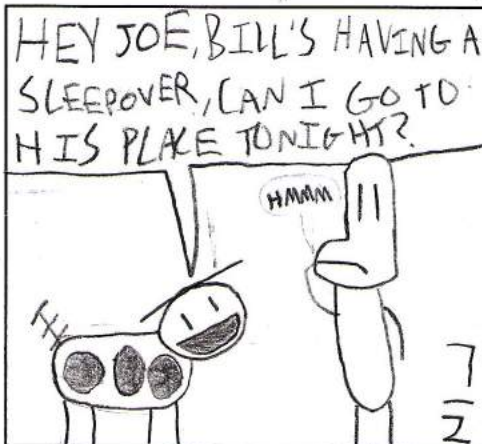 HEY JOE, BILL'S HAVING A
SLEEPOVER, CAN I GO TO
HIS PLACE TONIGHT?
HMMM
7
2